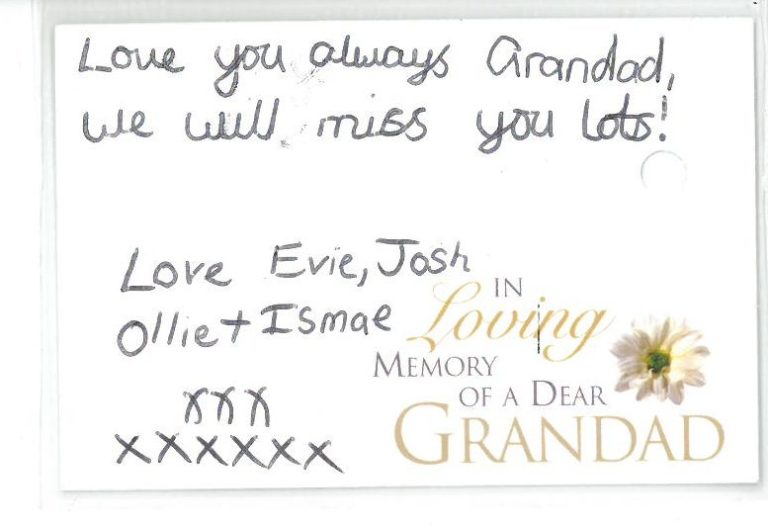 Love you always Grandad,
we will miss you lots!
Love Evie, Josh
Ollie + Ismae
xxx
xxxxxx
IN
Loving
MEMORY
OF A DEAR
GRANDAD